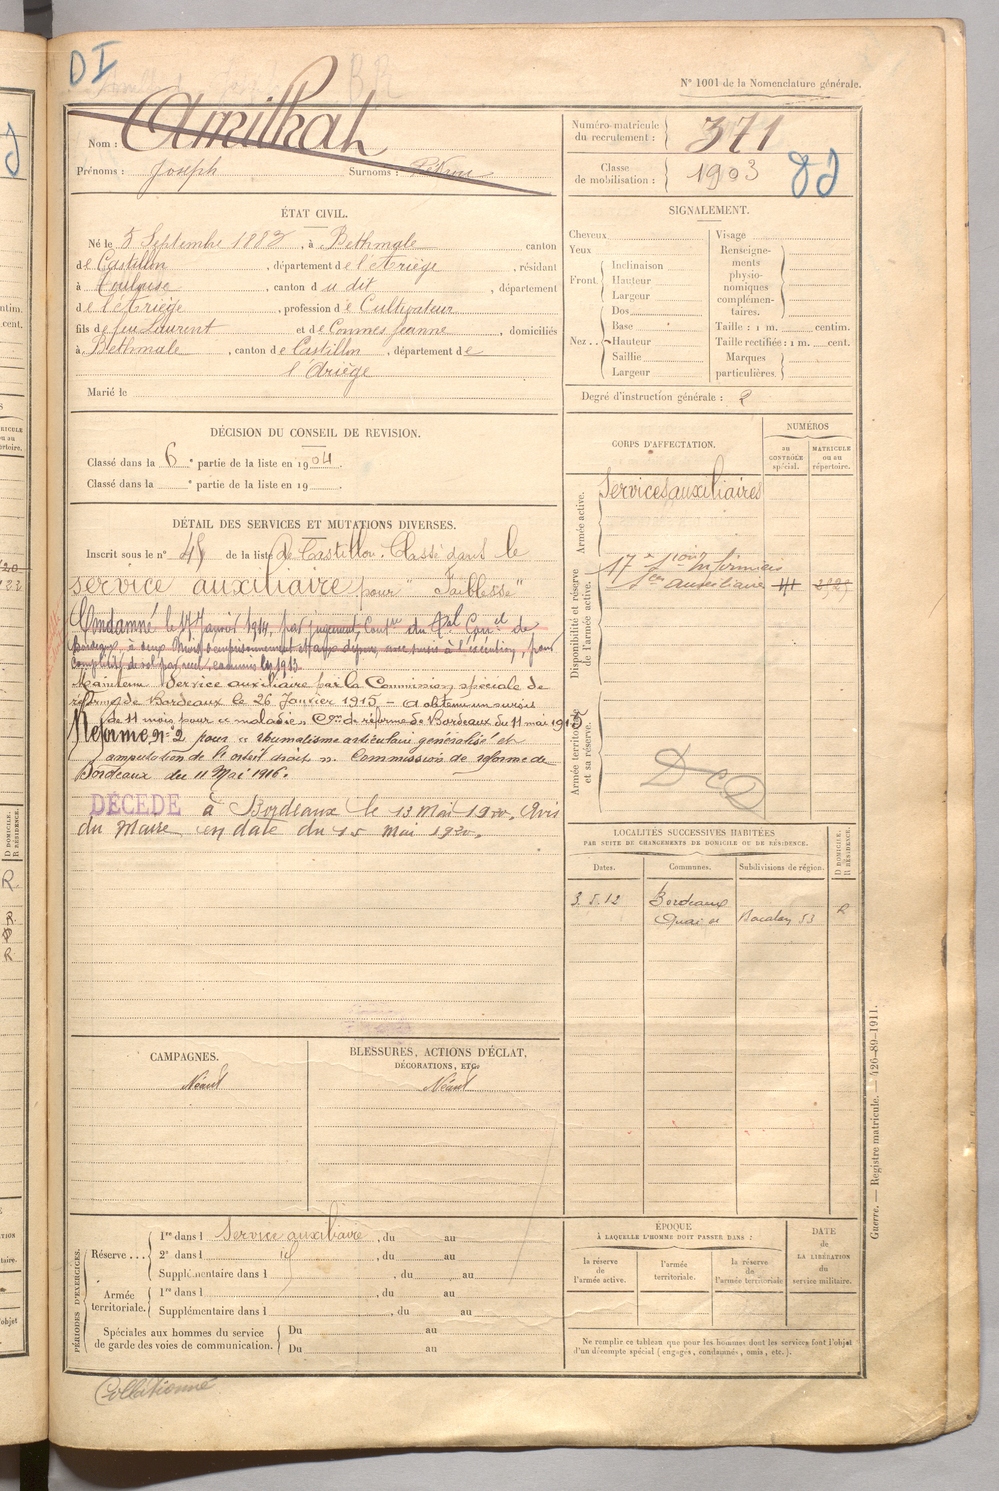 DI
N° 1001 de la Nomenclature générale.
Nom : Amilhat
Prénoms : Joseph Surnoms :
Numéro matricule du recrutement : 371
Classe de mobilisation : 1903
ÉTAT CIVIL.
Né le 5 Septembre 1883, à Bethmale canton
de Castillon, département de l'Ariège, résidant
à Toulouse, canton du dit, département
de l'Ariège, profession de Cultivateur
fils de feu Laurent et de Commes Jeanne, domiciliés
à Bethmale, canton de Castillon, département de
l'Ariège
Marié le
SIGNALEMENT.
Cheveux
Yeux
Front. Inclinaison
Hauteur
Largeur
Nez.. Dos
Base
Hauteur
Saillie
Largeur
Visage
Renseignements physionomiques complémentaires.
Taille : 1 m. centim.
Taille rectifiée : 1 m. cent.
Marques particulières.
Degré d'instruction générale : 2
DÉCISION DU CONSEIL DE REVISION.
Classé dans la 6e partie de la liste en 1904.
Classé dans la e partie de la liste en 19
CORPS D'AFFECTATION.
NUMÉROS
au CONTRÔLE spécial.
MATRICULE ou au répertoire.
Armée active.
Services auxiliaires
Disponibilité et réserve de l'armée active.
17e son Infirmiers
Sces auxiliaires
Armée territoriale et sa réserve.
DCD
DÉTAIL DES SERVICES ET MUTATIONS DIVERSES.
Inscrit sous le n° 48 de la liste de Castillon. Classé dans le
service auxiliaire pour "Faiblesse"
Condamné le 17 Janvier 1914, par jugement Contre du Bal Corel de
Bordeaux, à deux mois d'emprisonnement et aux dépens, avec sursis à l'exécution, pour
complicité de vol par recel, commis en 1913.
Maintenu Service auxiliaire par la Commission spéciale de
réforme de Bordeaux le 26 Janvier 1915 - A obtenu un sursis
de 11 mois pour "maladie" Con de réforme de Bordeaux du 11 mai 1915
Réformé n° 2 pour "rhumatisme articulaire généralisé et
amputation de l'orteil droit". Commission de réforme de
Bordeaux du 11 Mai 1916.
DÉCÉDÉ à Bordeaux le 13 Mai 1920. Avis
du Maire en date du 15 Mai 1920.
LOCALITÉS SUCCESSIVES HABITÉES
PAR SUITE DE CHANGEMENTS DE DOMICILE OU DE RÉSIDENCE.
Dates. Communes. Subdivisions de région. D DOMICILE. R RÉSIDENCE.
3.5.12 Bordeaux
Quai de Bacalan 53 R
CAMPAGNES.
Néant
BLESSURES, ACTIONS D'ÉCLAT,
DÉCORATIONS, ETC.
Néant
PÉRIODES D'EXERCICES.
Réserve... 1re dans l Service auxiliaire, du au
2e dans l id, du au
Supplémentaire dans l, du au
Armée territoriale. 1re dans l, du au
Supplémentaire dans l, du au
Spéciales aux hommes du service de garde des voies de communication. Du au
Du au
ÉPOQUE
À LAQUELLE L'HOMME DOIT PASSER DANS :
la réserve de l'armée active.
l'armée territoriale.
la réserve de l'armée territoriale
DATE de LA LIBÉRATION du service militaire.
Ne remplir ce tableau que pour les hommes dont les services font l'objet
d'un décompte spécial (engagés, condamnés, omis, etc.).
Guerre. — Registre matricule. — 426-89-1911.
Collationné